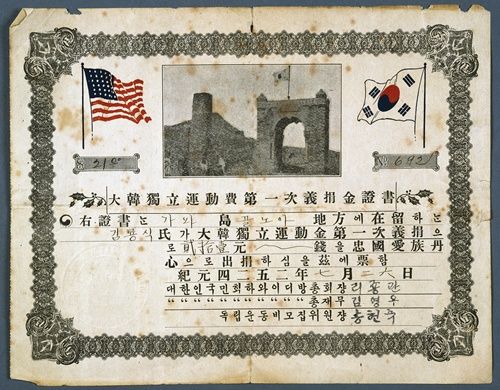 21⁰⁰
No 692
大韓獨立運動費第一次義捐金證書
右證書는 가와 島 골노아 地方에在留하는
김봉식氏가大韓獨立運動金第一次義捐으
로貳拾壹元 錢을忠國愛族丹
心으로出捐하심을玆에票함
紀元四二五二年七月二六日
대한인국민회하와이디방총회장리종관
〃〃〃〃〃〃〃〃〃총재무김영우
독립운동비모집위원장승현주